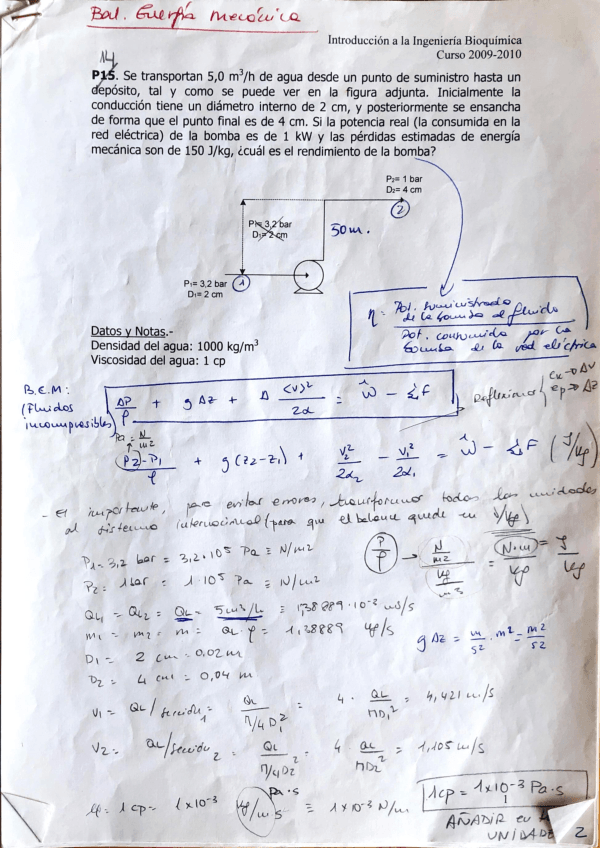 Bal. Energía mecánica
Introducción a la Ingeniería Bioquímica
Curso 2009-2010
14
P15. Se transportan 5,0 m³/h de agua desde un punto de suministro hasta un
depósito, tal y como se puede ver en la figura adjunta. Inicialmente la
conducción tiene un diámetro interno de 2 cm, y posteriormente se ensancha
de forma que el punto final es de 4 cm. Si la potencia real (la consumida en la
red eléctrica) de la bomba es de 1 kW y las pérdidas estimadas de energía
mecánica son de 150 J/kg, ¿cuál es el rendimiento de la bomba?
P₂= 1 bar
D₂= 4 cm
2
P₁= 3,2 bar
D₁= 2 cm
30m.
P₁= 3,2 bar
D₁= 2 cm
1
η = Pot. suministrada de la bomba al fluido / Pot. consumida por la bomba de la red eléctrica
Datos y Notas.-
Densidad del agua: 1000 kg/m³
Viscosidad del agua: 1 cp
B.E.M:
(Fluidos
incompresibles)
ΔP/ρ + gΔz + Δ <v>²/2α = Ŵ - ΣF
Reflexionar { Ec → ΔV
ep → Δz
Pa = N/m²
(P2 - P1)/ρ + g(z2-z1) + V₂²/2α₂ - V₁²/2α₁ = Ŵ - ΣF (J/kg)
- El importante, para evitar errores, transformar todas las unidades
al sistema internacional (para que el balance quede en J/kg)
P1 = 3,2 bar = 3,2·10⁵ Pa ≡ N/m2
P2 = 1 bar = 1·10⁵ Pa ≡ N/m2
P/ρ → N/m2 / kg/m3 = N·m/kg = J/kg
QL1 = QL2 = QL = 5m3/h ≡ 1,38889·10⁻³ m3/s
m1 = m2 = m = QL·ρ = 1,38889 kg/s
gΔz = m/s2 · m = m2/s2
D1 = 2 cm = 0,02 m
D2 = 4 cm = 0,04 m
V1 = QL/sección1 = QL/π/4 D1² = 4· QL/πD1² = 4,421 m/s
V2 = QL/sección2 = QL/π/4 D2² = 4 QL/πD2² = 1,105 m/s
Pa·s
μ = 1cp = 1x10⁻³ kg/m s ≡ 1x10⁻³ N/m
1cp = 1x10⁻³ Pa·s
AÑADIR en
UNIDADE
2